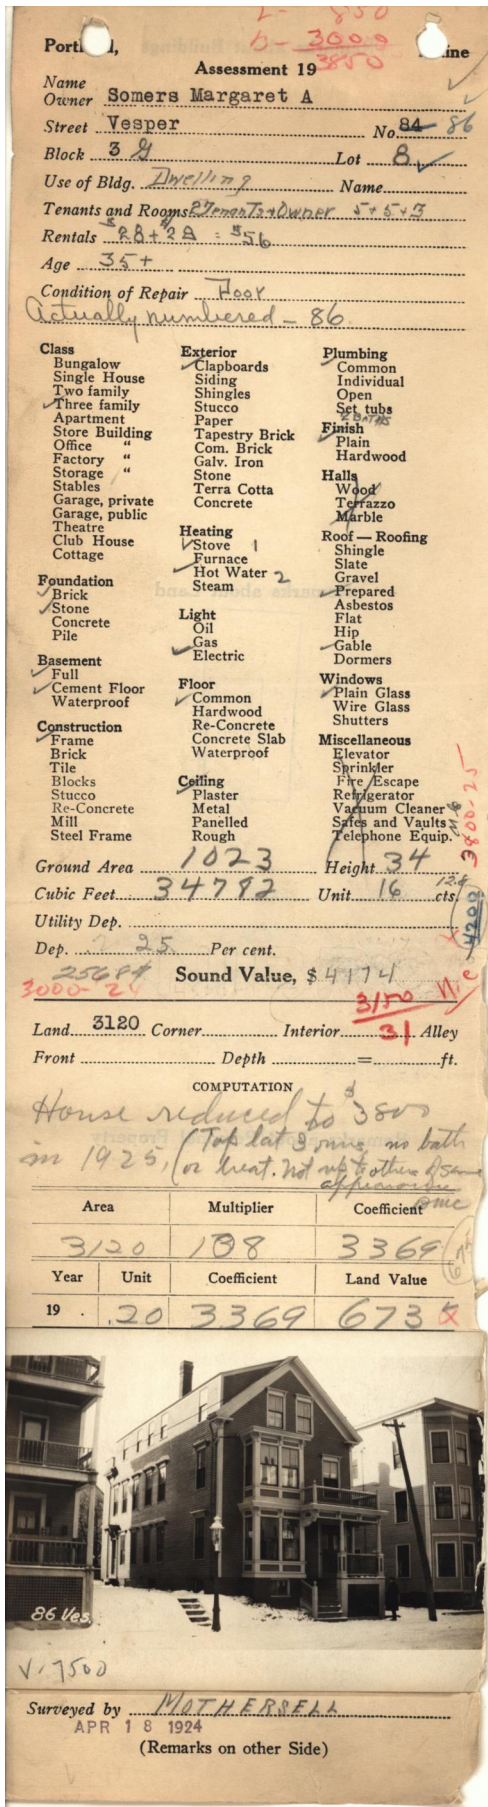 L - 850
b - 3000
3850
Portland, Maine
Assessment 19
Name
Owner Somers Margaret A
Street Vesper No. 84 86
Block 3 G Lot 8
Use of Bldg. Dwelling Name
Tenants and Rooms 2 Tenants + Owner 5+5+3
Rentals $28+$28 = $56
Age 35+
Condition of Repair Poor
Actually numbered - 86
Class
Bungalow
Single House
Two family
Three family
Apartment
Store Building
Office "
Factory "
Storage "
Stables
Garage, private
Garage, public
Theatre
Club House
Cottage
Foundation
Brick
Stone
Concrete
Pile
Basement
Full
Cement Floor
Waterproof
Construction
Frame
Brick
Tile
Blocks
Stucco
Re-Concrete
Mill
Steel Frame
Exterior
Clapboards
Siding
Shingles
Stucco
Paper
Tapestry Brick
Com. Brick
Galv. Iron
Stone
Terra Cotta
Concrete
Heating
Stove 1
Furnace
Hot Water 2
Steam
Light
Oil
Gas
Electric
Floor
Common
Hardwood
Re-Concrete
Concrete Slab
Waterproof
Ceiling
Plaster
Metal
Panelled
Rough
Plumbing
Common
Individual
Open
Set tubs
2 BATHS
Finish
Plain
Hardwood
Halls
Wood
Terrazzo
Marble
Roof — Roofing
Shingle
Slate
Gravel
Prepared
Asbestos
Flat
Hip
Gable
Dormers
Windows
Plain Glass
Wire Glass
Shutters
Miscellaneous
Elevator
Sprinkler
Fire Escape
Refrigerator
Vacuum Cleaner
Safes and Vaults
Telephone Equip.
3800-25
Ground Area 1023 Height 34
Cubic Feet 34782 Unit 16 cts.
12.8
4200
Utility Dep.
Dep. 25 Per cent.
Sound Value, $ 4174
3000-26
3150
Land 3120 Corner Interior 31 Alley
Front Depth = ft.
COMPUTATION
House reduced to $3800
in 1925, (Top lat 3 rms, no bath
or heat. Not up to others of same
appearance
Area Multiplier Coefficient
3120 108 3369
Year Unit Coefficient Land Value
19 . .20 3369 673
86 Ves.
V. 7500
Surveyed by MOTHERSELL
APR 18 1924
(Remarks on other Side)